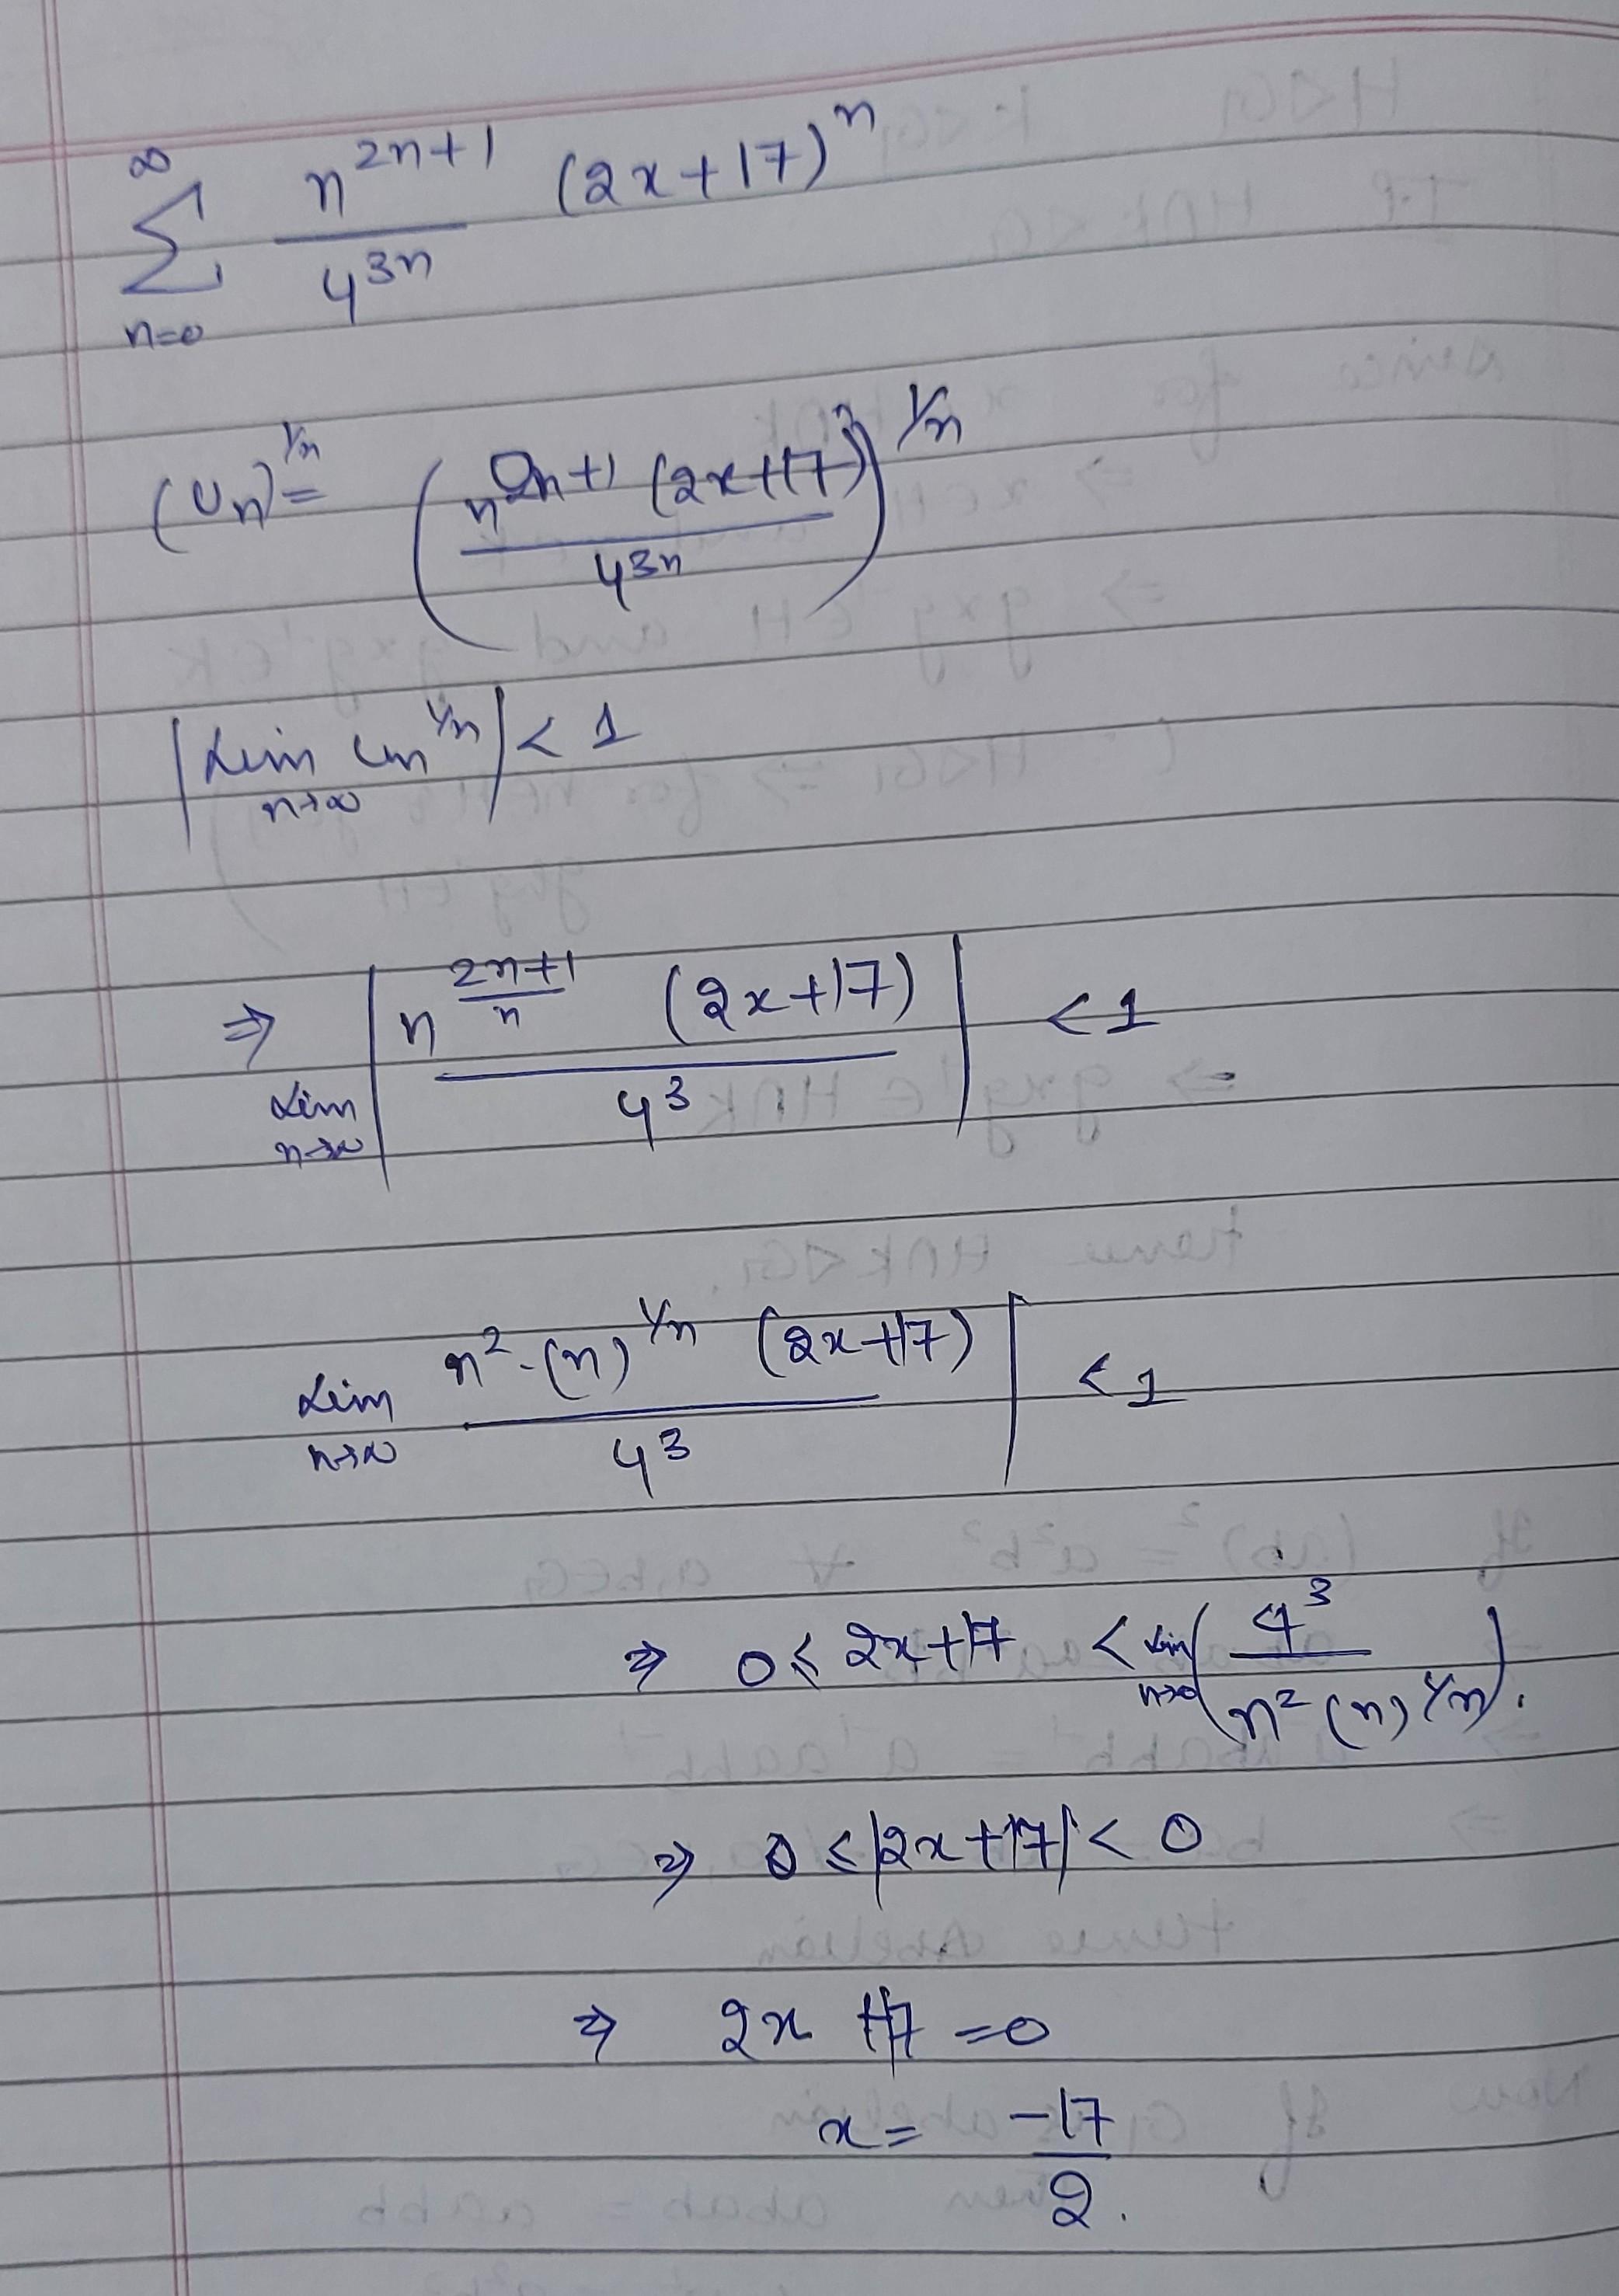 ∞
∑ n^{2n+1} / 4^{3n} (2x+17)^n
n=0
(Un)^{1/n} = ( n^{2n+1} (2x+17)^n / 4^{3n} )^{1/n}
| Lim Un^{1/n} | < 1
n→∞
⇒ Lim n→∞ | n^{(2n+1)/n} (2x+17) / 4^3 | < 1
Lim n→∞ n^2 · (n)^{1/n} (2x+17) / 4^3 | < 1
⇒ 0 ≤ 2x+17 < Lim n→∞ ( 4^3 / n^2 (n)^{1/n} ).
⇒ 0 ≤ |2x+17| < 0
⇒ 2x+17 = 0
x = -17 / 2.